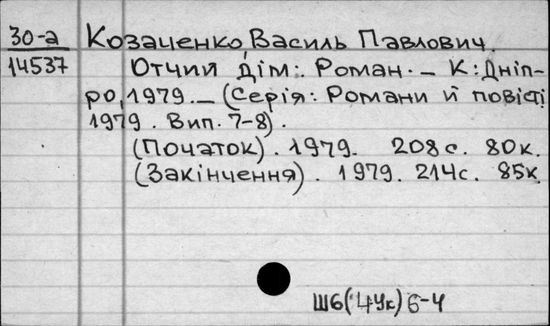 30-а Козаченко, Василь Павлович.
14537 Отчий дім: Роман. — К: Дніп-
ро, 1979. — (Серія: Романи й повісті
1979. Вип. 7-8).
(Початок). 1979. 208 с. 80к.
(Закінчення). 1979. 214с. 85к.
Ш6(4Ук) 6-4